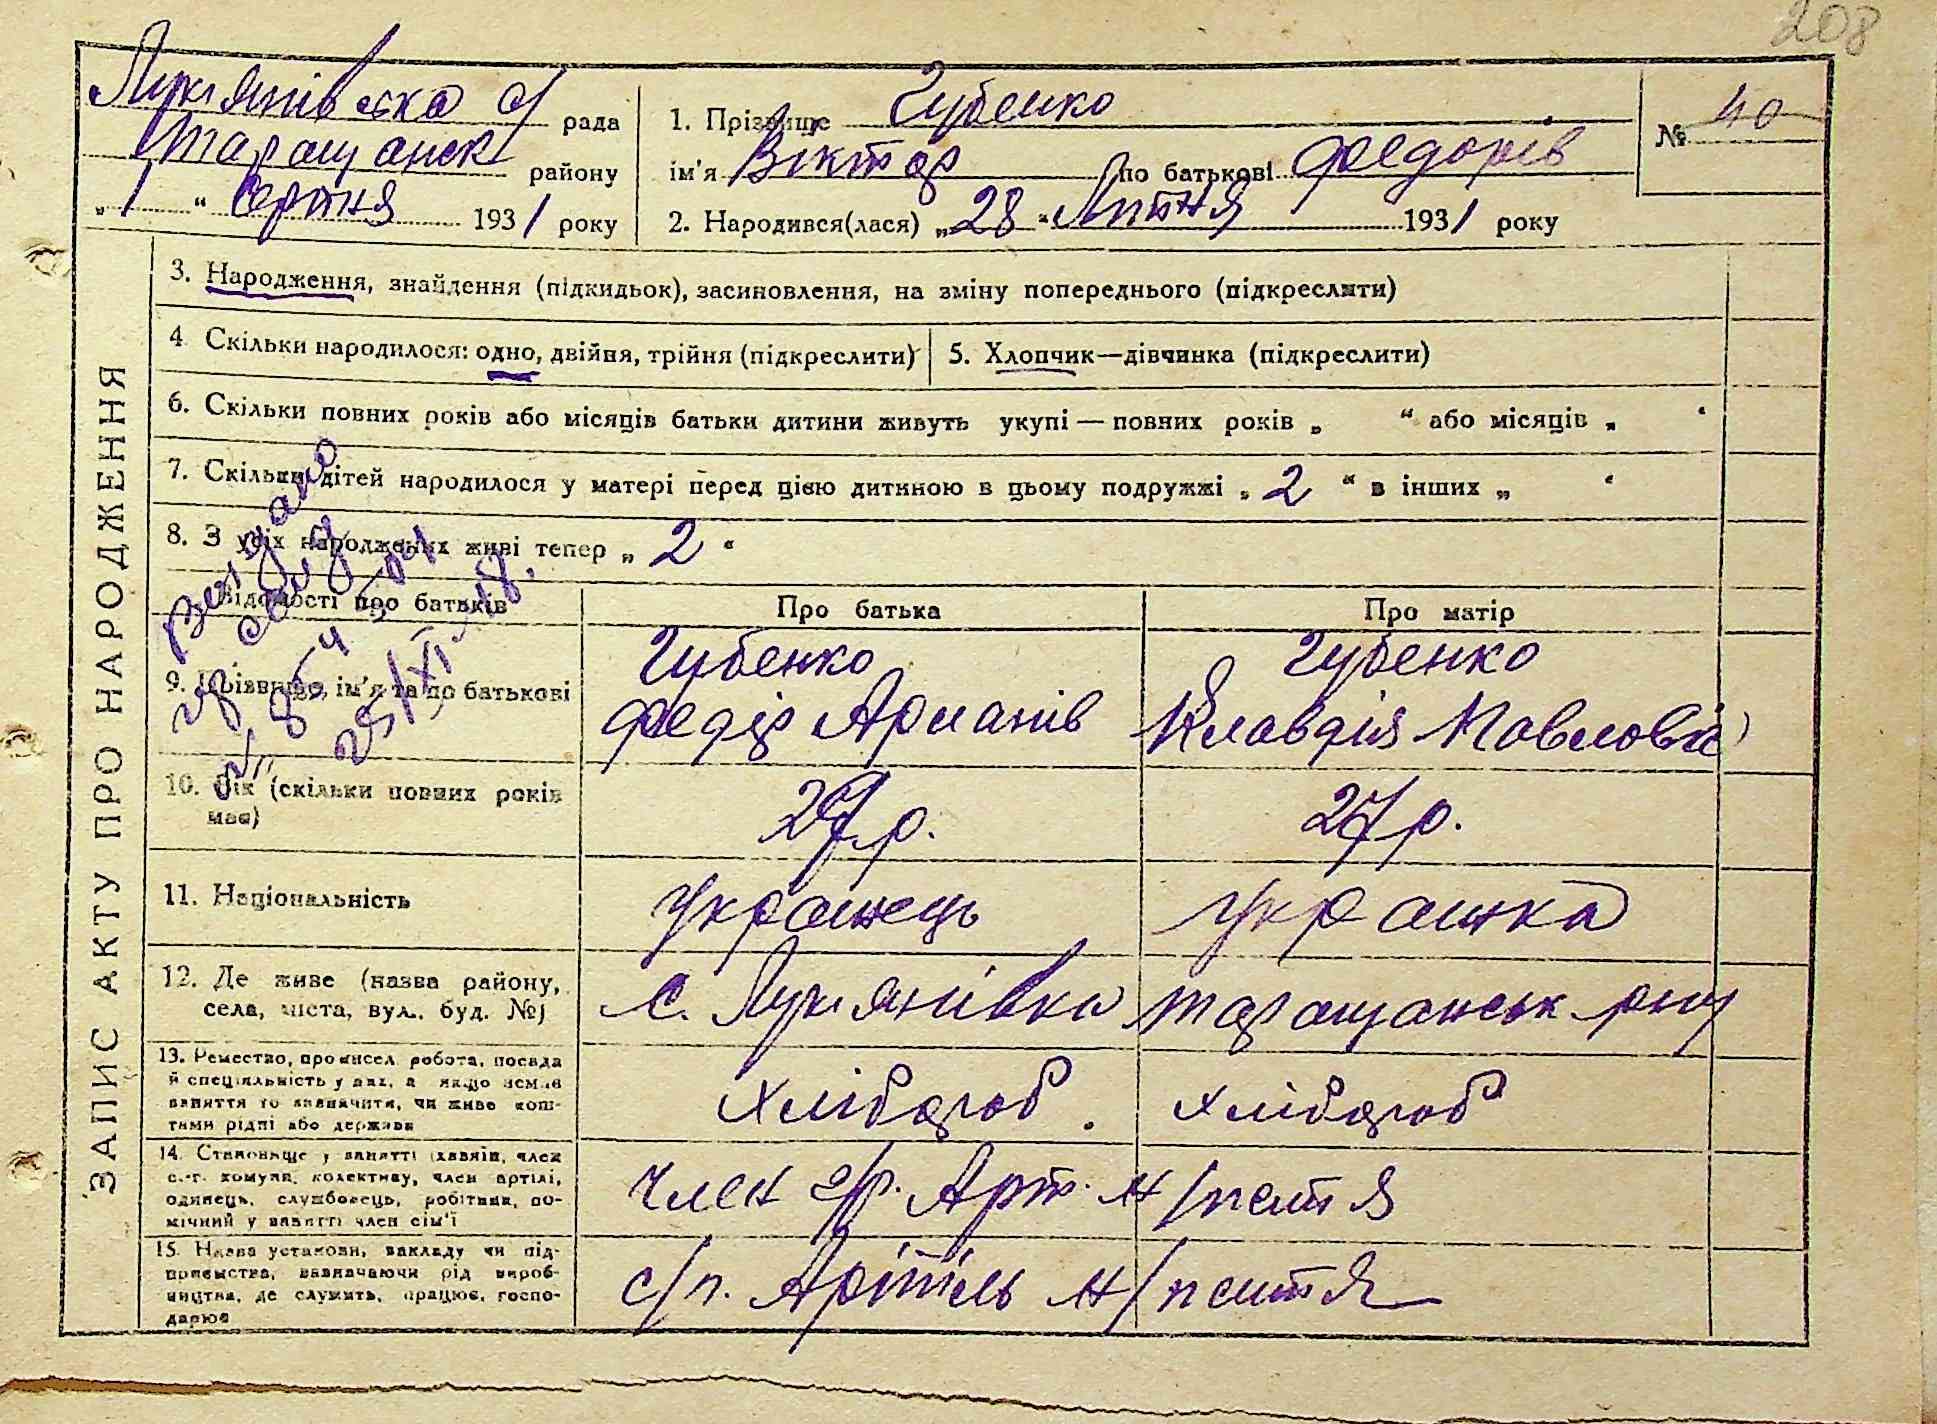 208
Лук'янівська с/ рада
Таращанськ району
„ 1 " серпня 1931 року
1. Прізвище Губенко
ім'я Віктор по батькові Федорів
2. Народився(лася) „28" Липня 1931 року
№ 40
ЗАПИС АКТУ ПРО НАРОДЖЕННЯ
3. Народження, знайдення (підкидьок), засиновлення, на зміну попереднього (підкреслити)
4 Скільки народилося: одно, двійня, трійня (підкреслити)
5. Хлопчик—дівчинка (підкреслити)
6. Скільки повних років або місяців батьки дитини живуть укупі — повних років „ " або місяців „ "
7. Скільки дітей народилося у матері перед цією дитиною в цьому подружжі „ 2 " в інших „ "
8. З усіх народжених живі тепер „ 2 "
Видано
свід
25/XI-48.
Відомості про батьків
Про батька
Про матір
9. Прізвище, ім'я та по батькові
Губенко
Федір Арианів
Губенко
Клавдія Павловна
10. Вік (скільки повних років має)
29 р.
27 р.
11. Національність
Українець
Українка
12. Де живе (назва району,
села, міста, вул., буд. №)
с. Лук'янівка Таращанськ р-ну
13. Ремество, промисел, робота, посада
й спеціяльність у них, а якщо немає
заняття то зазначити, чи живе кош-
тами рідні або держави
Хлібороб.
Хлібороб
14. Становище у занятті (хазяїн, член
с.-г. комуни, колективу, член артілі,
одинець, службовець, робітник, по-
мічний у занятті член сім'ї
Член с/г. Арт. н/життя
15. Назва установи, закладу чи під-
приємства, зазначаючи рід вироб-
ництва, де служить, працює, госпо-
дарює
с/г. Артіль н/життя